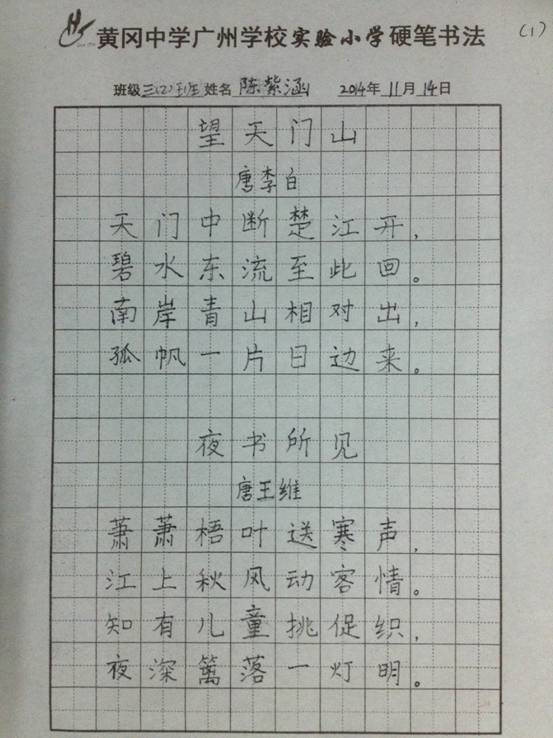 黄冈中学广州学校实验小学硬笔书法
(1)
班级三(2)班姓名陈紫涵 2014年11月14日
望天门山
唐李白
天门中断楚江开,
碧水东流至此回。
南岸青山相对出,
孤帆一片日边来。
夜书所见
唐王维
萧萧梧叶送寒声,
江上秋风动客情。
知有儿童挑促织,
夜深篱落一灯明。